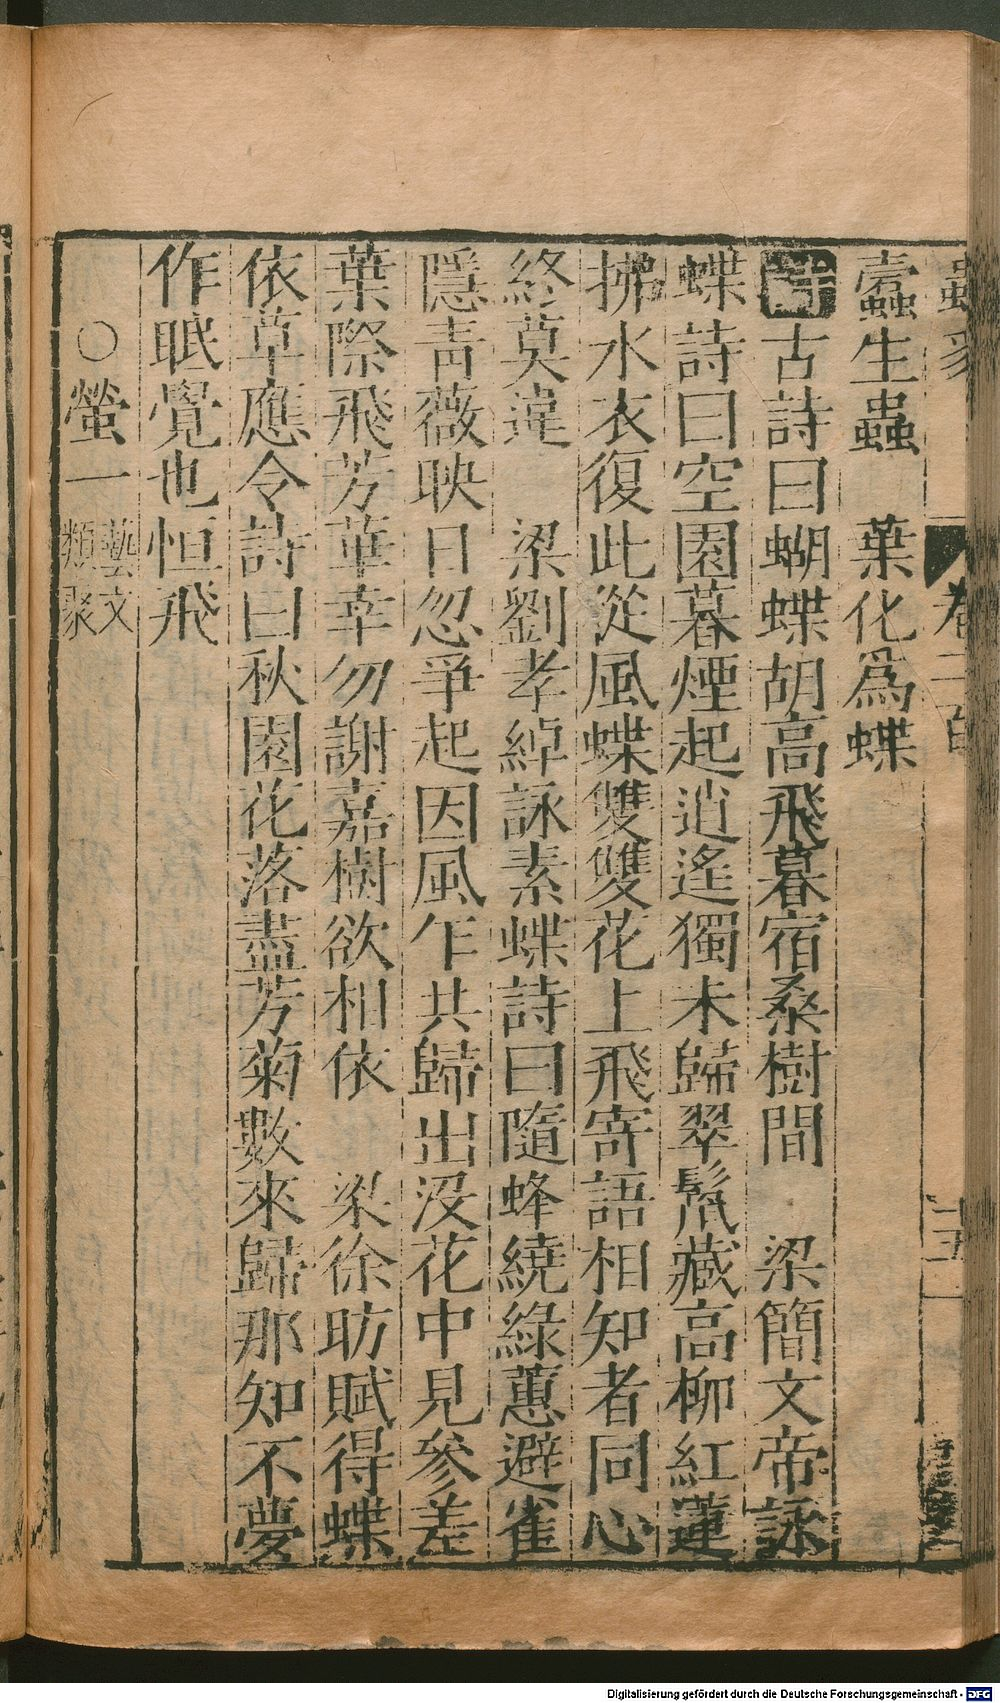 蠧生蟲　葉化爲蝶
詩古詩曰蝴蝶胡高飛暮宿桑樹間　梁簡文帝詠
蝶詩曰空園暮煙起逍遙獨未歸翠鬛藏高柳紅蓮
拂水衣復此從風蝶雙雙花上飛寄語相知者同心
終莫違　梁劉孝綽詠素蝶詩曰隨蜂繞綠蕙避雀
隱靑薇映日忽爭起因風乍共歸出沒花中見參差
葉際飛芳華幸勿謝嘉樹欲相依　梁徐昉賦得蝶
依草應令詩曰秋園花落盡芳菊數來歸那知不夢
作眠覺也恒飛
○螢一藝文類聚
Digitalisierung gefördert durch die Deutsche Forschungsgemeinschaft - DFG